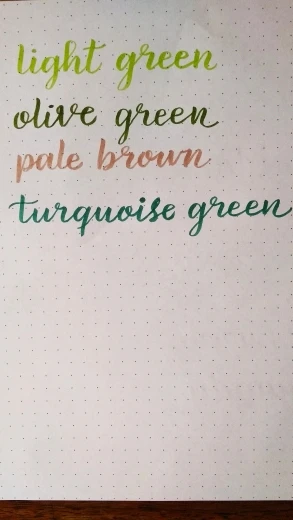 light green
olive green
pale brown
turquoise green